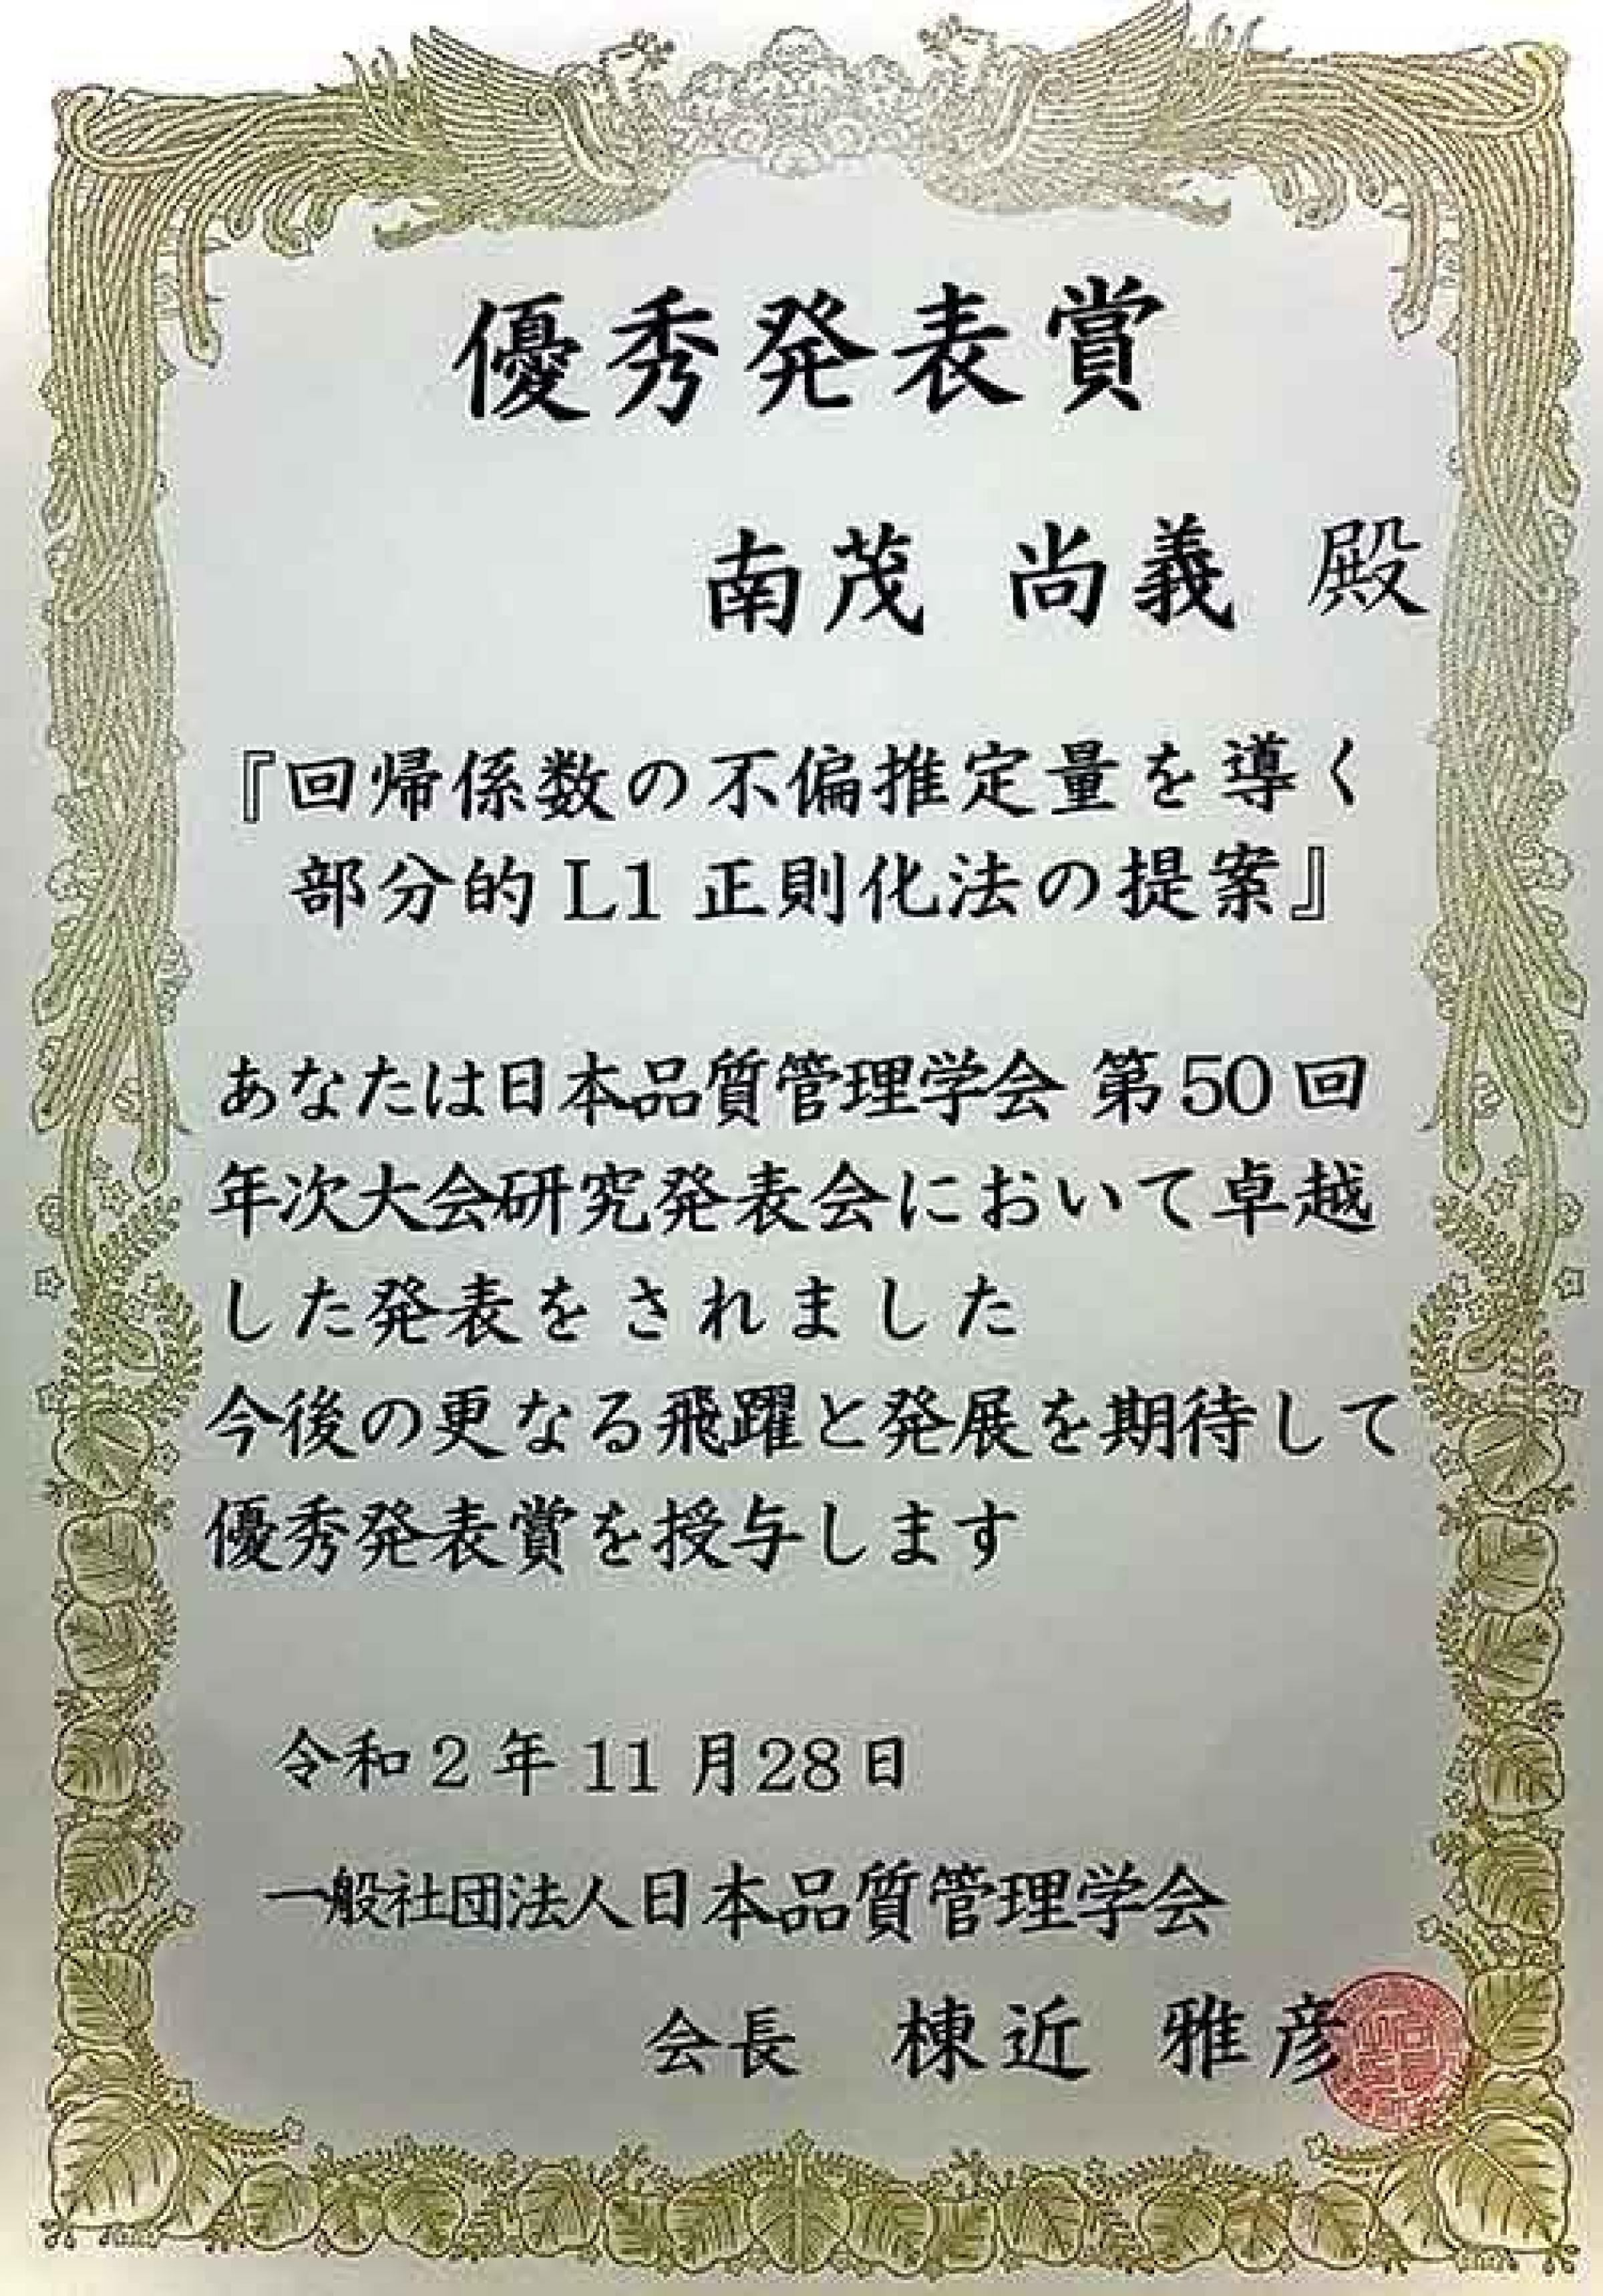 優秀発表賞
南茂 尚義 殿
『回帰係数の不偏推定量を導く
部分的 L1 正則化法の提案』
あなたは日本品質管理学会 第50回
年次大会研究発表会において卓越
した発表をされました
今後の更なる飛躍と発展を期待して
優秀発表賞を授与します
令和2年11月28日
一般社団法人日本品質管理学会
会長 棟近 雅彦